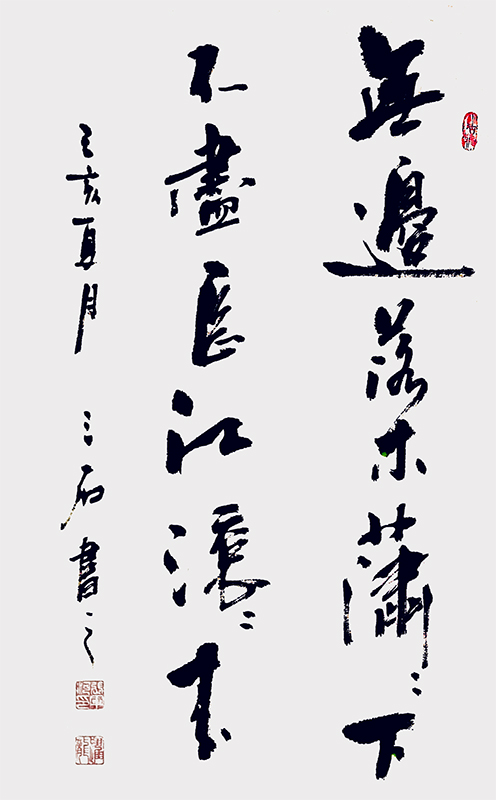 無邊落木蕭〻下
不盡長江滾〻來
己亥夏月 三石書之